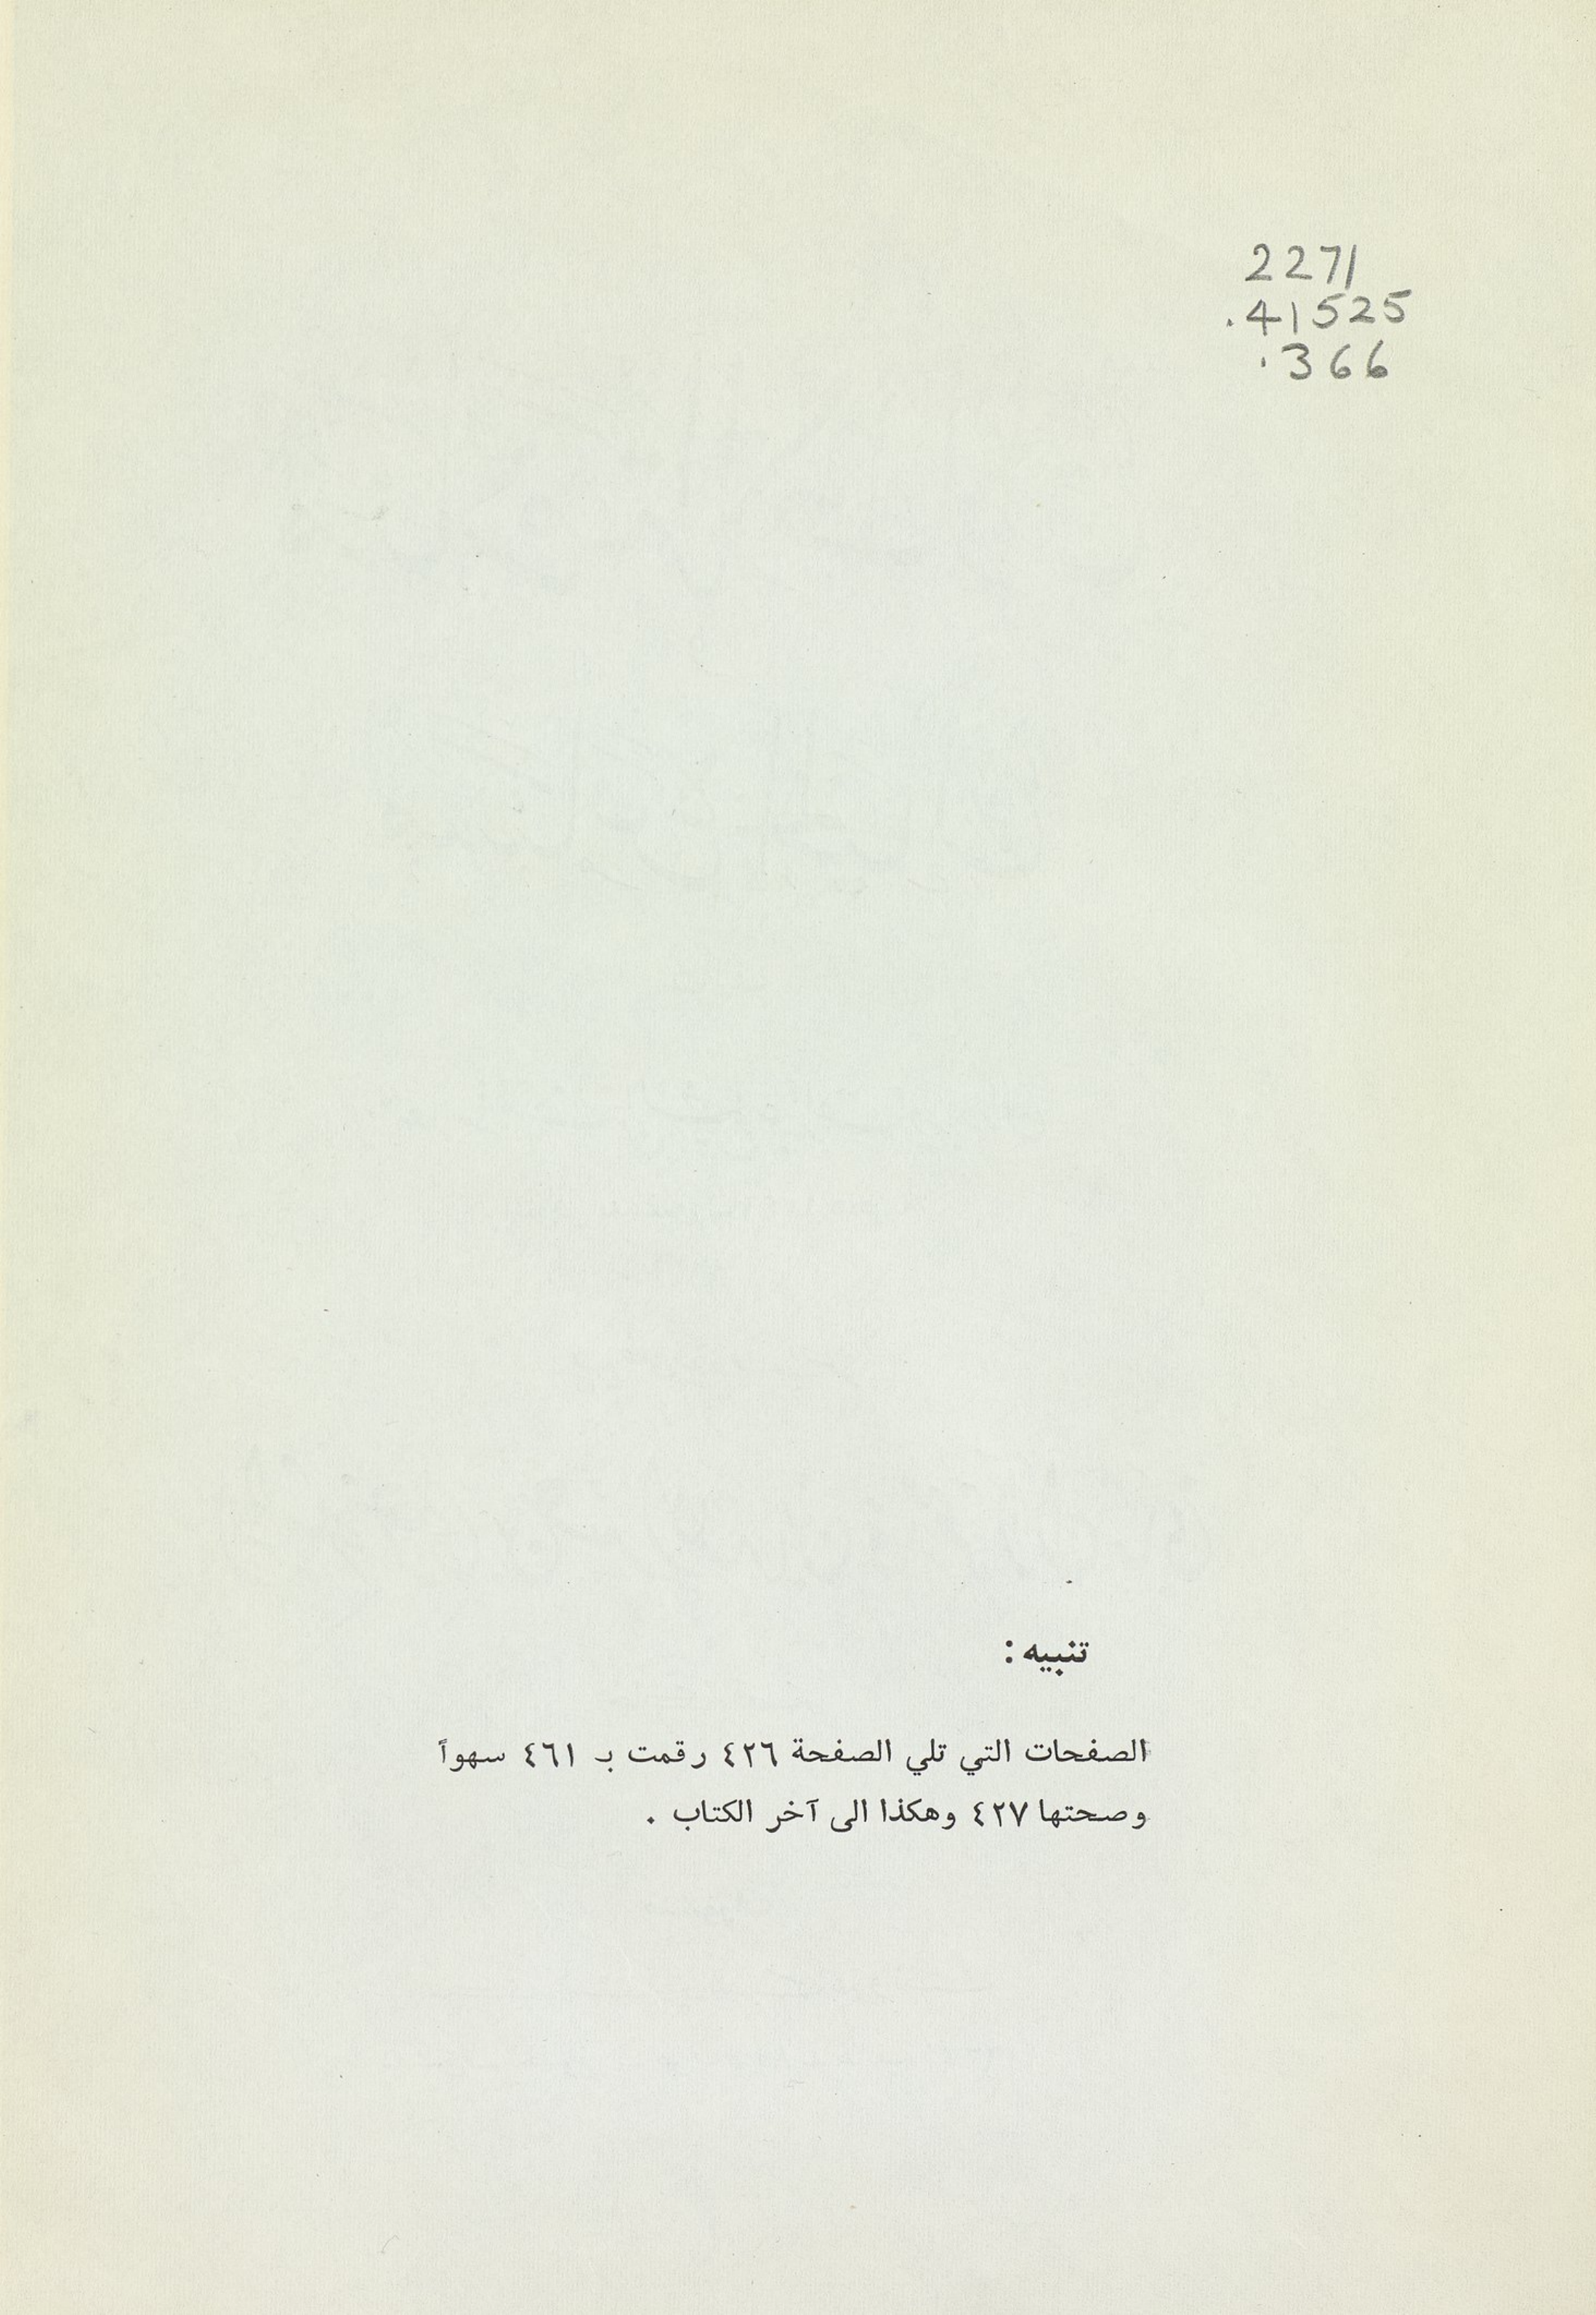 2271
.41525
.366
تنبيه :
الصفحات التي تلي الصفحة ٤٢٦ رقمت بـ ٤٦١ سهواً
وصحتها ٤٢٧ وهكذا الى آخر الكتاب .